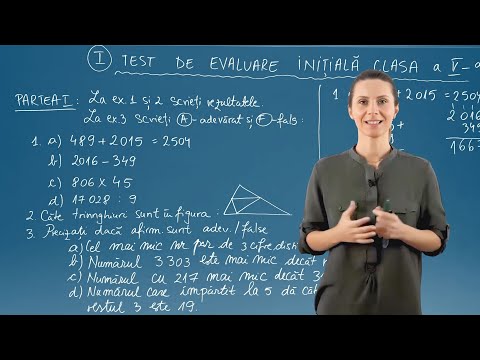 I TEST DE EVALUARE INIȚIALĂ CLASA a V-a
PARTEA I: La ex. 1 și 2 scrieți rezultatele
La ex. 3 scrieți A - adevărat și F - fals:
1. a) 489 + 2015 = 2504
b) 2016 - 349
c) 806 X 45
d) 17028 : 9
2. Câte triunghiuri sunt în figura:
3. Precizați dacă afirm. sunt adev. / false
a) Cel mai mic nr par de 3 cifre
b) Numărul 3303 este mai mic decât
c) Numărul cu 217 mai mic decât
d) Numărul care împărțit la 5 dă
restul 3 este 19.
1
2015 = 2504
2016
349
166